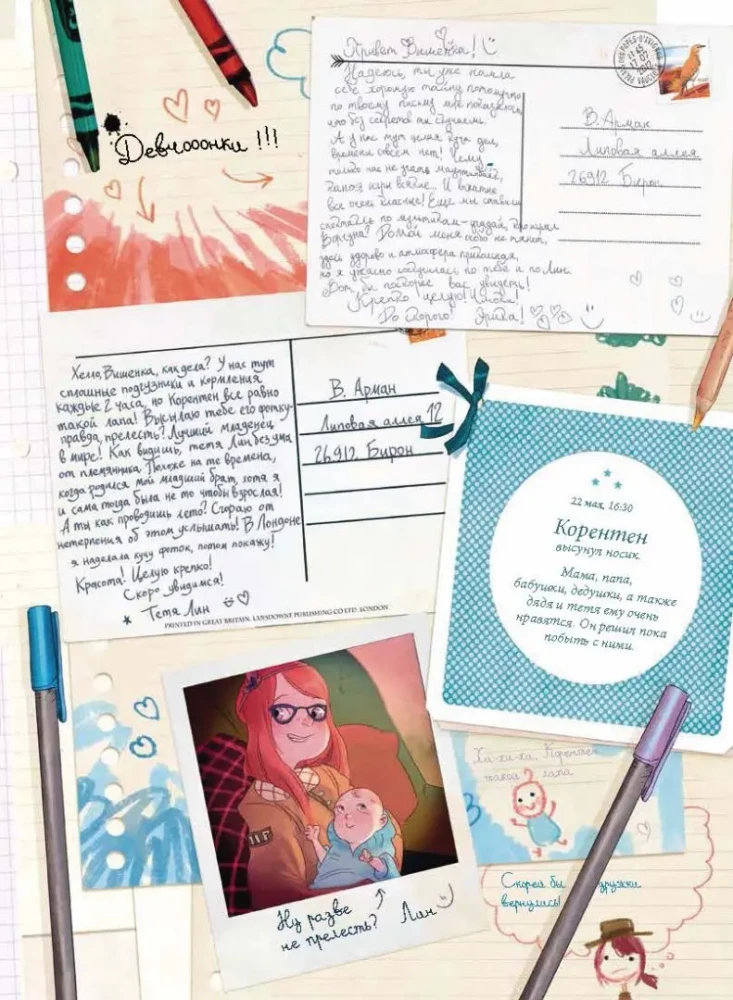 Девчооонки !!!
Привет Вишенка!
Надеюсь, ты уже нашла
себе хорошую тайну потому что
по твоему письму мне показалось,
что без секретов ты скучаешь.
А у нас тут целая куча дел,
времени совсем нет! Чему
только нас не учат
все очень классные! Еще мы ставили
спектакль по мультикам - угадай, кто играл
Домой меня не тянет,
здесь здорово и атмосфера прикольная,
но я ужасно соскучилась по тебе и по Лин.
Вот бы поскорее вас увидеть!
Крепко целую!
До скорого! Эрика!
В. Арман
Липовая аллея
26912 Бирон
Хелло, Вишенка, как дела? У нас тут
сплошные подгузники и кормления
каждые 2 часа, но Корентен все равно
такой лапа! Высылаю тебе его фотку-
правда, прелесть? Лучший младенец
в мире! Как видишь, тетя Лин без ума
от племянника. Похоже на те времена,
когда родился мой младший брат, хотя я
и сама тогда была не то чтобы взрослая!
А ты как проводишь лето? Сгораю от
нетерпения об этом услышать! В Лондоне
я наделала кучу фоток, потом покажу!
Красота! Целую крепко!
Скоро увидимся!
Тетя Лин
PRINTED IN GREAT BRITAIN. LANSDOWNE PUBLISHING CO LTD. LONDON
В. Арман
Липовая аллея 12
26912 Бирон
22 мая, 16:30
Корентен
высунул носик.
Мама, папа,
бабушки, дедушки, а также
дядя и тетя ему очень
нравятся. Он решил пока
побыть с ними.
Ну разве
не прелесть? Лин
Хи-хи-хи. Корентен
такой лапа
Скорей бы дружки
вернулись!